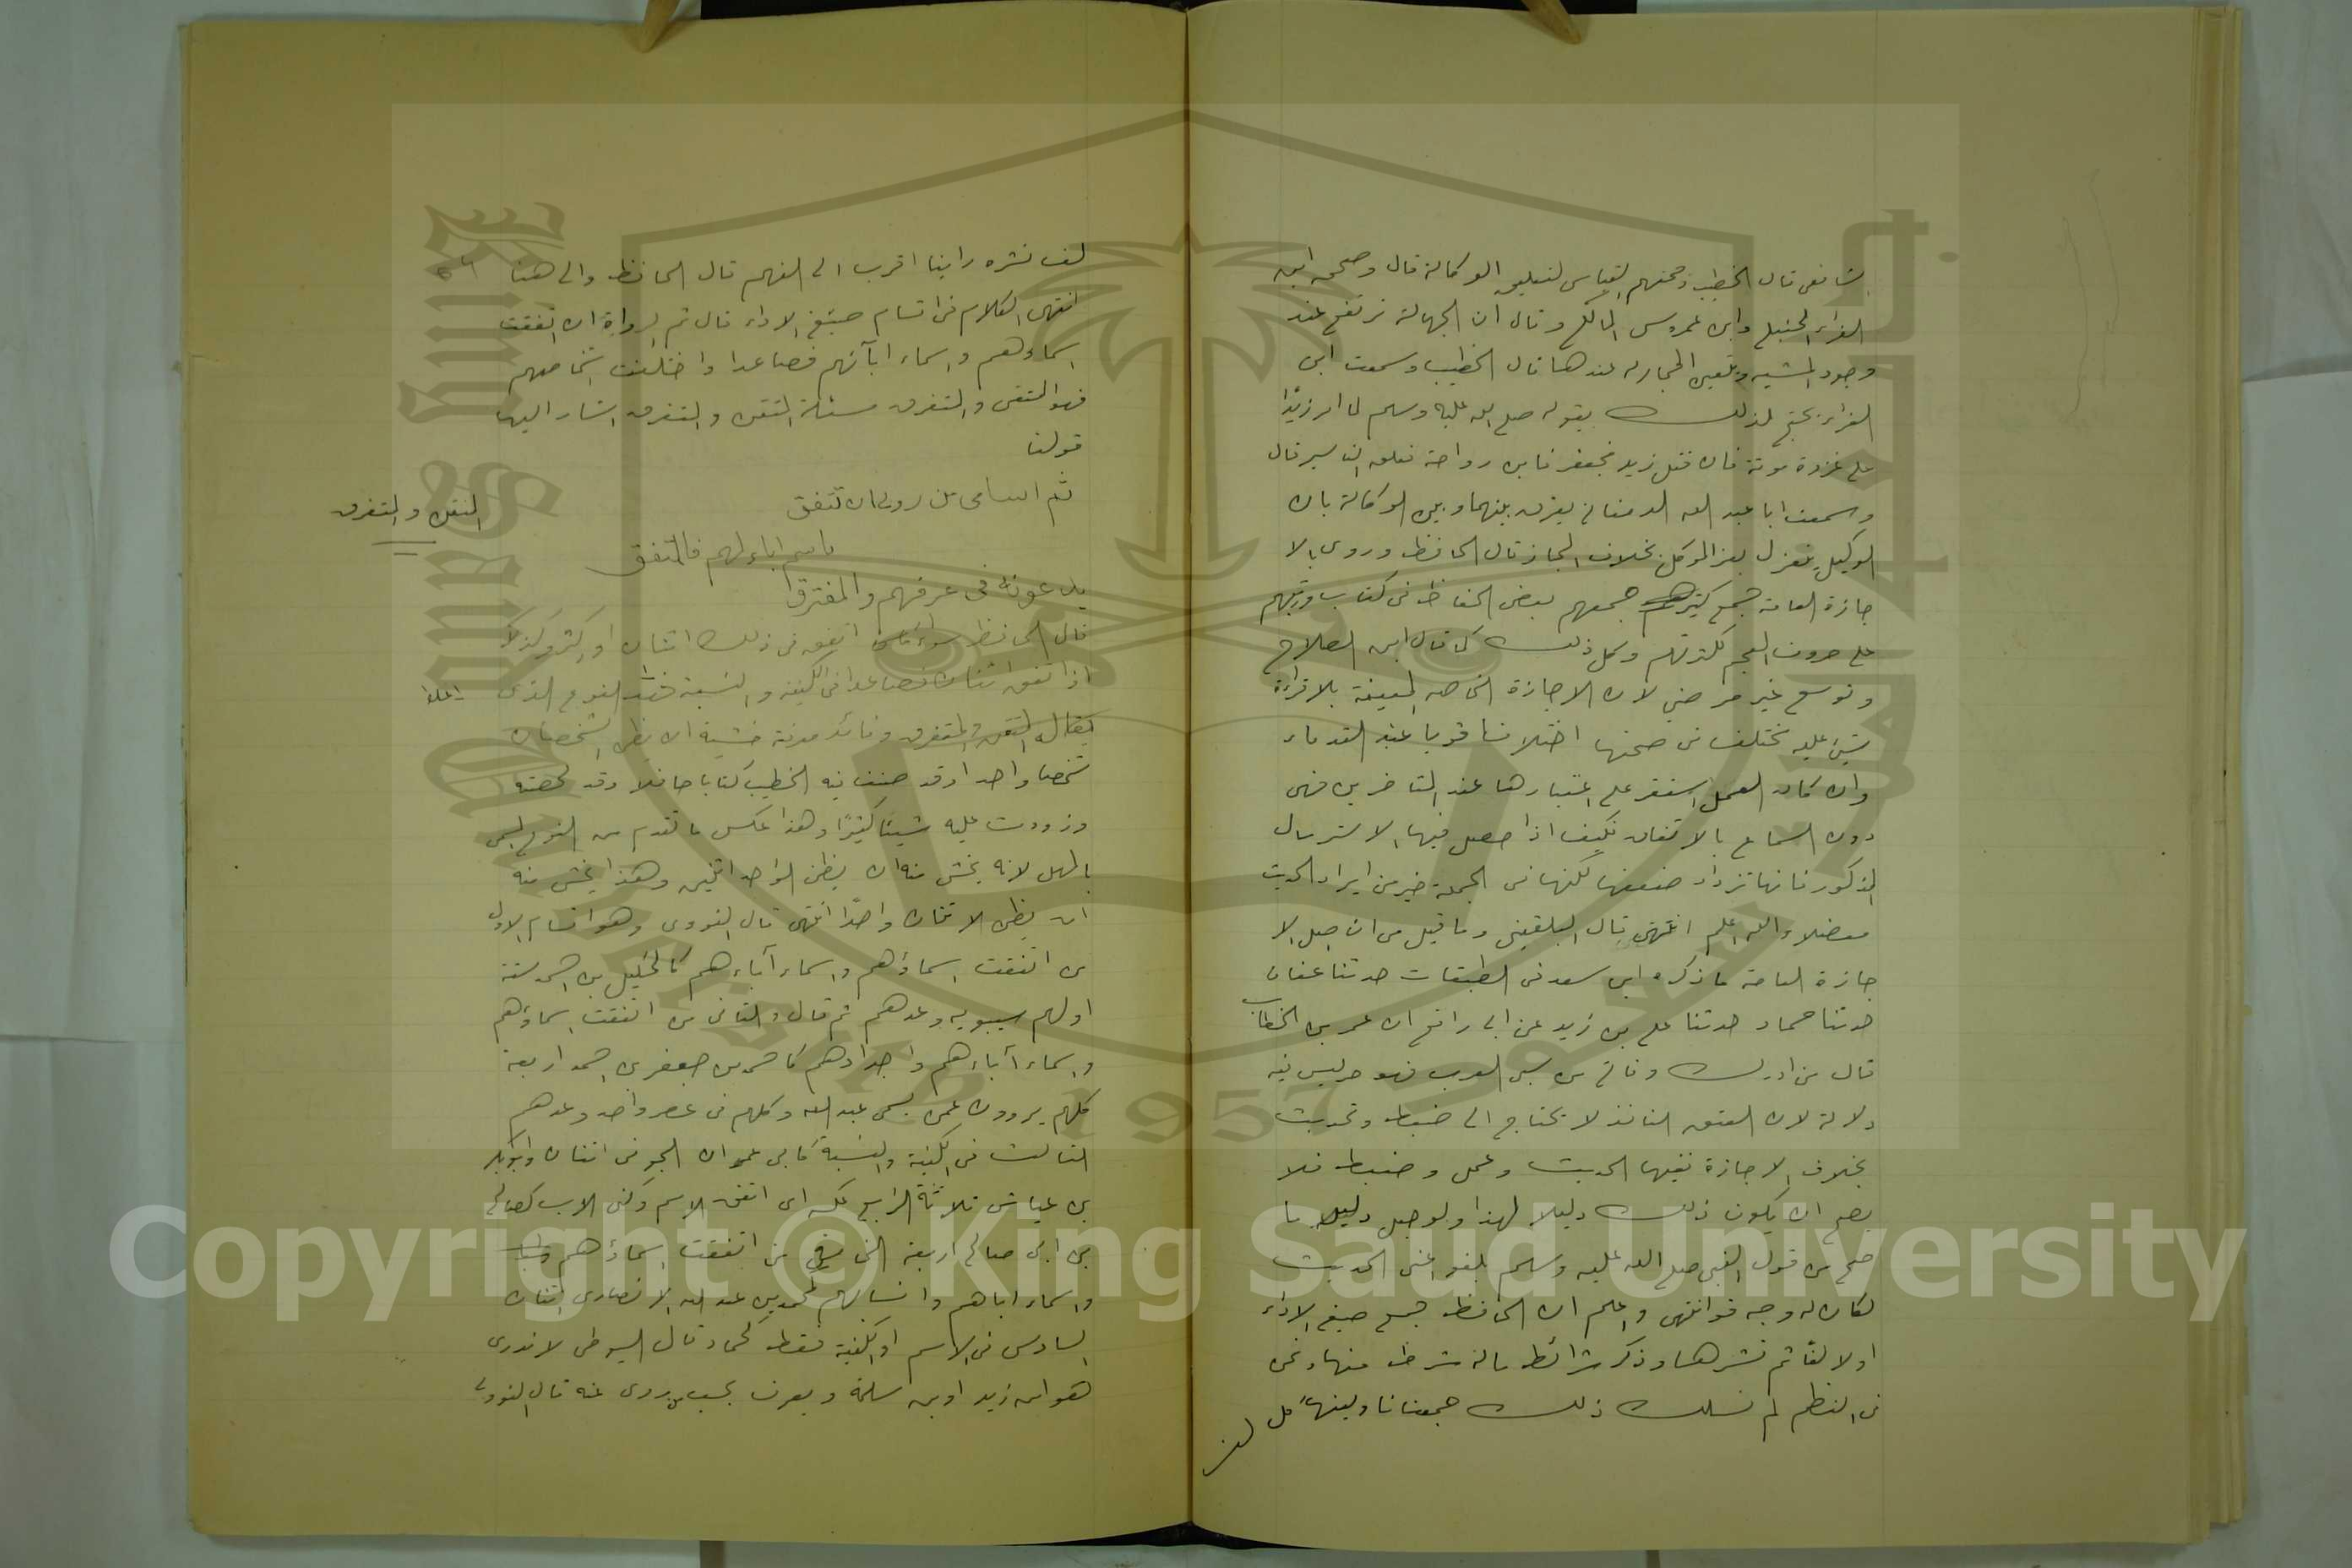 شافعى قال الخطيب وحجتهم القياس لتعليق الوكالة قال وصححه ابن
الفراء الحنبلى وابن عمروس المالكى وقال ان الجهالة ترتفع عند
وجود المشيه وتعين المجازله عندها قال الخطيب وسمعت ابن
الفراء يحتج لذلك بقوله صلى الله عليه وسلم لما امر زيدًا
على غزوة موتة فان قتل زيد فجعفر فابن رواحة فعلق التاسير قال
وسمعت ابا عبد الله الدمغانى يفرق بينهما وبين الوكالة بان
الوكيل ينعزل بعزل الموكل بخلاف المجاز قال الحافظ وروى بالا
جازة العامة جمع كثير جمعهم بعض الحفاظ فى كتاب ورتبهم
على حروف المعجم لكثرتهم وكل ذلك كما قال ابن الصلاح
وتوسع غير مرضي لان الاجازة الخاصه المعينة بلا قراءة
شيئ عليه مختلف فى صحتها اختلافا قويا عند القدماء
وان كان العمل استقر على اعتبارها عند المتاخرين فهى
دون السماع بالاتفاق فكيف اذا حصل فيها الاسترسال
المذكور فانها تزداد ضعفا لكنها فى الجملة خير من ايراد الحديث
معضلا والله اعلم انتهى قال البلقينى وما قيل من ان اصل الا
جازة العامة ما ذكره ابن سعد فى الطبقات حدثنا عفان
حدثنا حماد حدثنا على بن زيد عن ابى رافع ان عمر بن الخطاب
قال من ادرك وفاتى من سبى العرب فهو حر ليس فيه
دلالة لان العتق النافذ لا يحتاج الى ضبط وتحديث
بخلاف الاجازة ففيها الحديث وعمل وضبط فلا
يصح ان يكون ذلك دليلا لهذا ولو جعل دليله ما
صح من قول النبى صلى الله عليه وسلم بلغوا عنى الحديث
لكان له وجه قوى انتهى واعلم ان الحافظ جمع صيغ الاداء
اولا لفًا ثم نشرها وذكر شرائط ماله شرط منها ونحن
فى النظم لم نسلك ذلك جمعنا ناويينها كل
لف
لف نشره راينا اقرب الى الفهم قال الحافظ والى هنا
انتهى الكلام فى اقسام صيغ الاداء قال ثم الرواة ان اتفقت
اسماؤهم واسماء ابآئهم فصاعدا واختلفت اشخاصهم
فهو المتفق والمفترق مسئلة المتفق والمفترق اشار اليها
قولنا
ثم اسامى من روى ان تتفق
باسم اباء لهم فالمتفق
يدعونه فى عرفهم والمفترقا
المتفق والمفترق
قال الحافظ سواء اتفق فى ذلك اثنان او اكثر وكذلك
اذا اتفق اثنان فصاعدا فى الكنية والنسبة فهذا النوع الذى
يقال له المتفق والمفترق وفائدة معرفته خشية ان يظن الشخصان
شخصا واحدا وقد صنف فيه الخطيب كتابا حافلا وقد لخصته
وزودت عليه شيئا كثيرًا وهذا عكس ما تقدم من النوع المسمى
بالمهمل لانه يخشى منه ان يظن الواحد اثنين وهذا يخشى منه
ان يظن الاثنان واحدًا انتهى قال النووى وهو اقسام الاول
من اتفقت اسماؤهم واسماء آباءهم كالخليل بن احمد ستة
اولهم سيبويه وعدهم ثم قال والثانى من اتفقت اسماؤهم
واسماء آباءهم واجدادهم كاحمد بن جعفر بن احمد اربعة
كلهم يروون عمن يسمى عبد الله وكلهم فى عصر واحد وعدهم
الثالث فى الكنية والنسبة كابى عمران الجونى اثنان وابوبكر
بن عياش ثلاثة الرابع عكسه اى اتفق الاسم وكنى الاب كصالح
بن ابى صالح اربعة الخامس من اتفقت اسماؤهم
واسماء اباهم وانسابهم كمحمد بن عبد الله الانصارى اثنان
السادس فى الاسم او الكنية فقط كحماد قال السيوطى لا ندرى
هو ابن زيد او بن سلمة ويعرف بحسب من روى عنه قال النووى